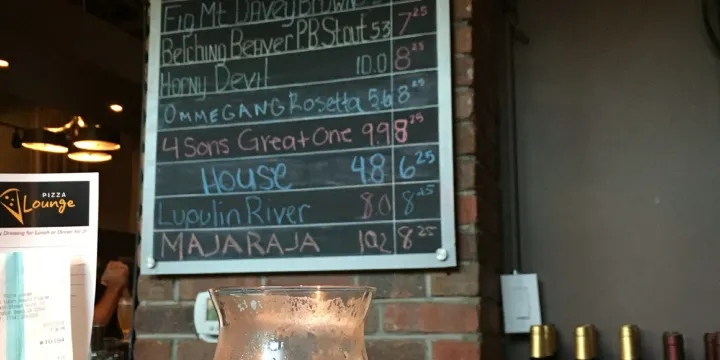 Fig Mt Davey Brown
7²⁵
Belching Beaver P.B. Stout 5.3
8²⁵
Horny Devil 10.0
OMMEGANG Rosetta 5.6 8²⁵
4 Sons Great One 9.9 8²⁵
House 4.8 6²⁵
Lupulin River 8.0 8²⁵
MAJARAJA 10.2 8²⁵
PIZZA
Lounge